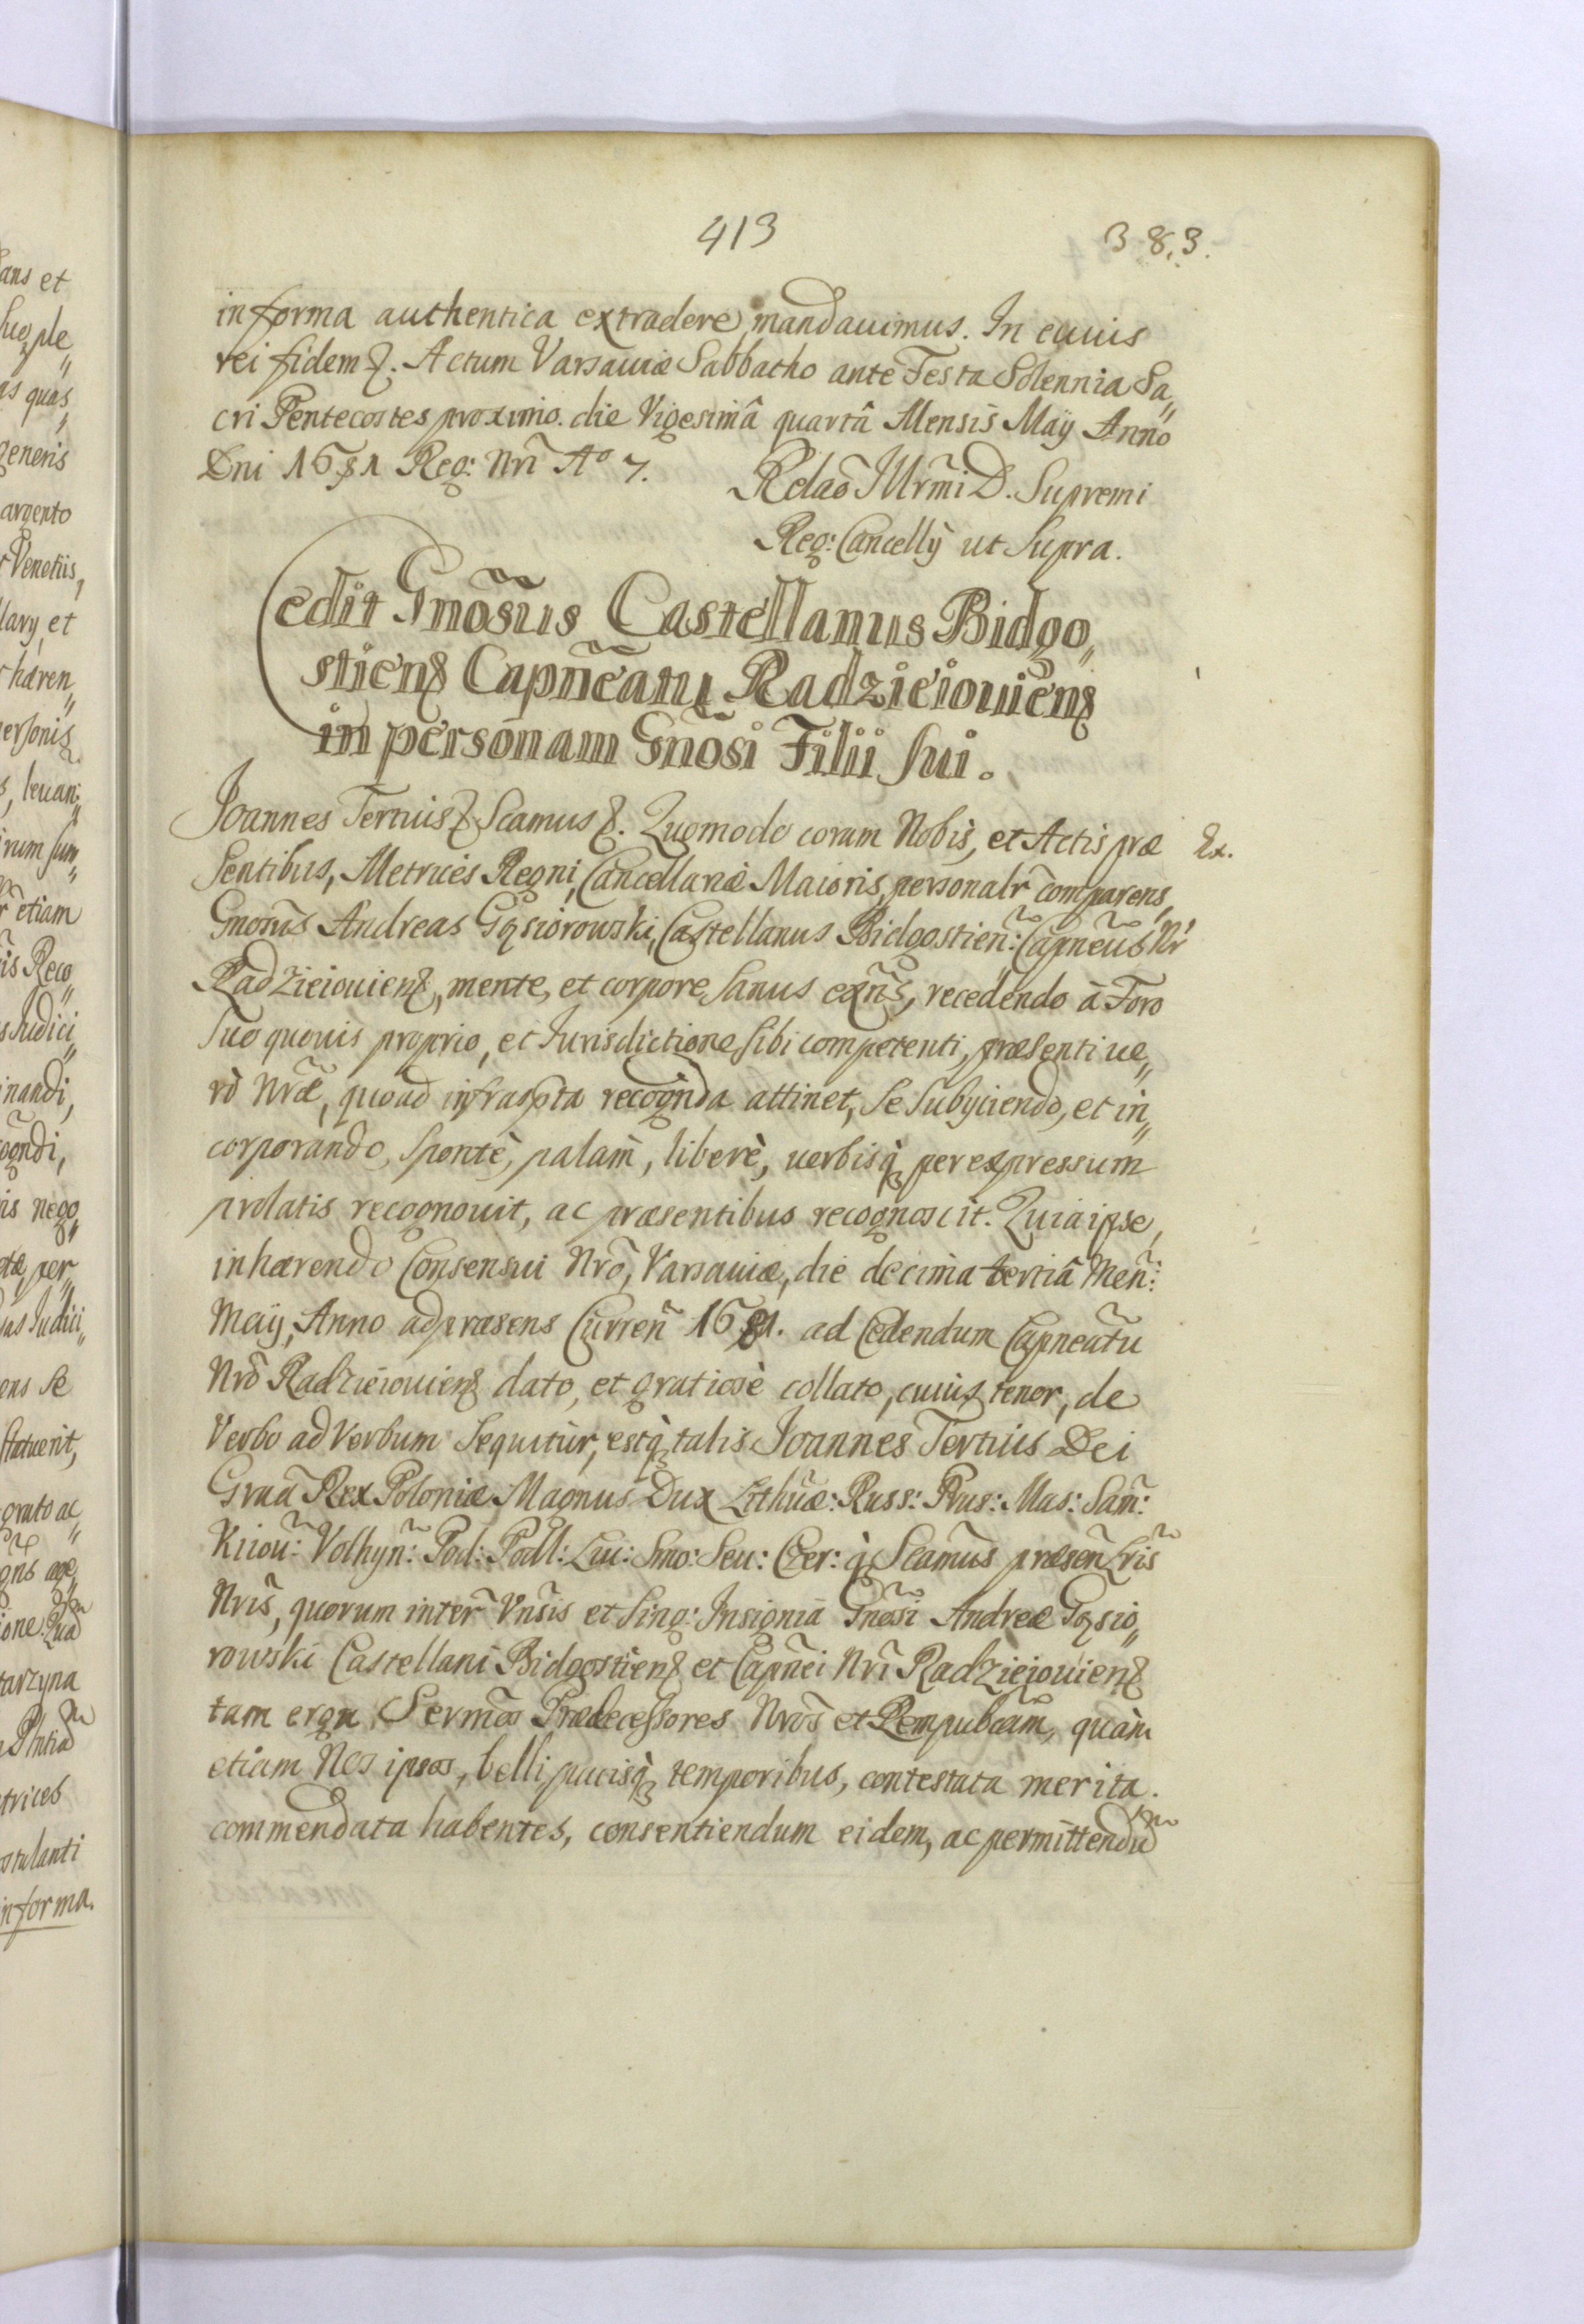 413
383.
in forma authentica extradere mandauimus. In cuius
rei fidem &. Actum Varsauiæ Sabbatho ante Festa Solennia Sa„
cri Pentecostes proximo. die Vigesimâ quartâ Mensis Maÿ Anno
Dni 1681 Reg: Nrĩ Aº 7.
Relaõ Illr̃mi D. Supremi
Reg: Cancellÿ ut Supra.
Cedit Gnõsus Castellanus Bidgo„
stiens Capñeatu Radzieiouiens
in personam Gnõsi Filii sui.
Joannes Tertius & Scamus &. Quomodo coram Nobis, et Actis præ
Ex.
sentibus, Metrices Regni, Cancellariæ Maioris, personalr̃ comparens,
Gnosus̃ Andreas Gąsiorowski, Castellanus Bidgostien̄: Capñeus Nr̃
Radzieiouiens, mente, et corpore sanus exñs, recedendo à Foro
suo quouis proprio, et Jurisdictione sibi competenti, præsenti ue„
rò Nrãe, quoad infraspta recognda attinet, se subÿciendo, et in„
corporando, spontè, palam̀, liberè, uerbisq̨ per expressum
prolatis recognouit, ac præsentibus recognoscit. Quia ipse,
inhærendo Consensui Nrõ, Varsauiæ, die decima tertiâ Meñ:
Maÿ, Anno ad præsens Curreñ 1681. ad Cedendum Capneatũ
Nrõ Radzieiouiens dato, et gratiosè collato, cuius tenor, de
Verbo ad Verbum sequitur, estq̨ talis Joannes Tertius Dei
Graã Rex Poloniæ Magnus Dux Lithũæ: Russ: Prus: Mas: Sam̃:
Kiiou: Volhyn̄: Pod: Podl: Liu: Smo: Seu: Czer: q̨ Scamus̃ præseñ Lris̃
Nris̃, quorum inter̃ Vnsis̃ et sing: Insignia Gnosĩ Andreæ Gąsio„
rowski Castellani Bidgostiens et Capñei Nrĩ Radzieiouiens
tam erga Sermõs Prædecessores Nrõs et Rempublcam̃, quàm
etiam Nos ipsos, belli pacisq̨ temporibus, contestata merita.
commendata habentes, consentiendum eidem, ac permittendũ